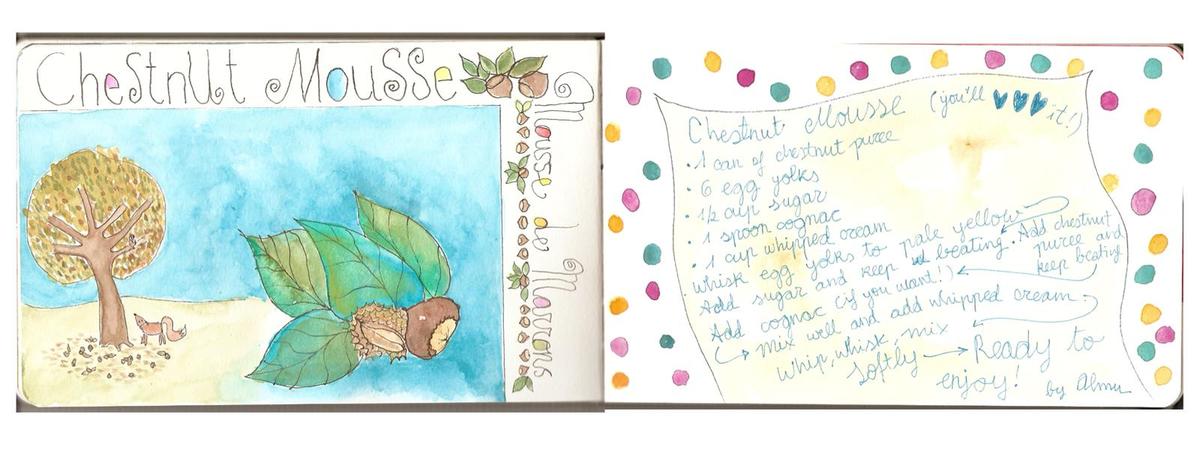 Chestnut Mousse
Mousse de Marrons
Chestnut Mousse (you'll it!)
• 1 can of chestnut puree
• 6 egg yolks
• 1/2 cup sugar
• 1 spoon cognac
• 1 cup whipped cream
whisk egg yolks to pale yellow
Add sugar and keep beating. Add chestnut
puree and
keep beating
Add cognac (if you want!)
mix well and add whipped cream.
whip, whisk, mix
softly → Ready to
enjoy!
by Almu